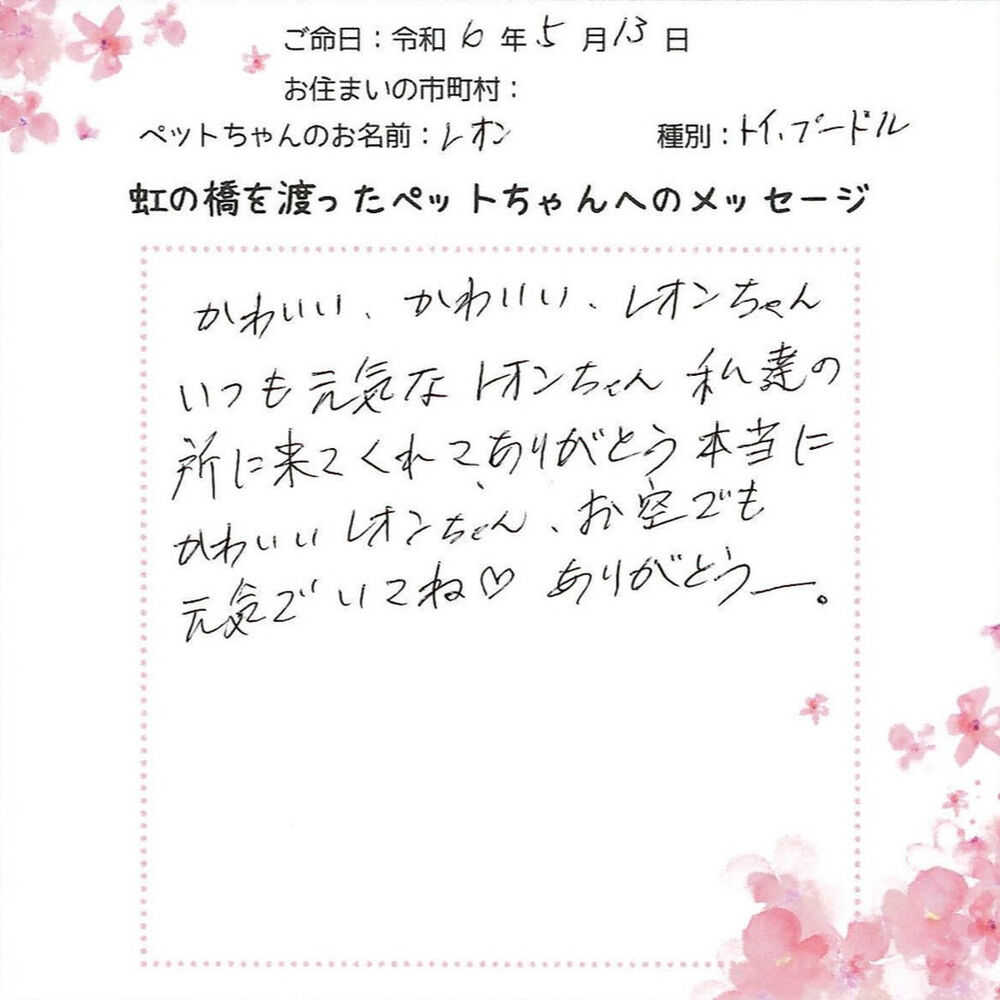 ご命日：令和 6 年 5 月 13 日
お住まいの市町村：
ペットちゃんのお名前：レオン 種別：トイ、プードル
虹の橋を渡ったペットちゃんへのメッセージ
かわいい、かわいい、レオンちゃん
いつも元気なレオンちゃん 私達の
所に来てくれてありがとう本当に
かわいいレオンちゃん、お空でも
元気でいてね♡ ありがとうー。